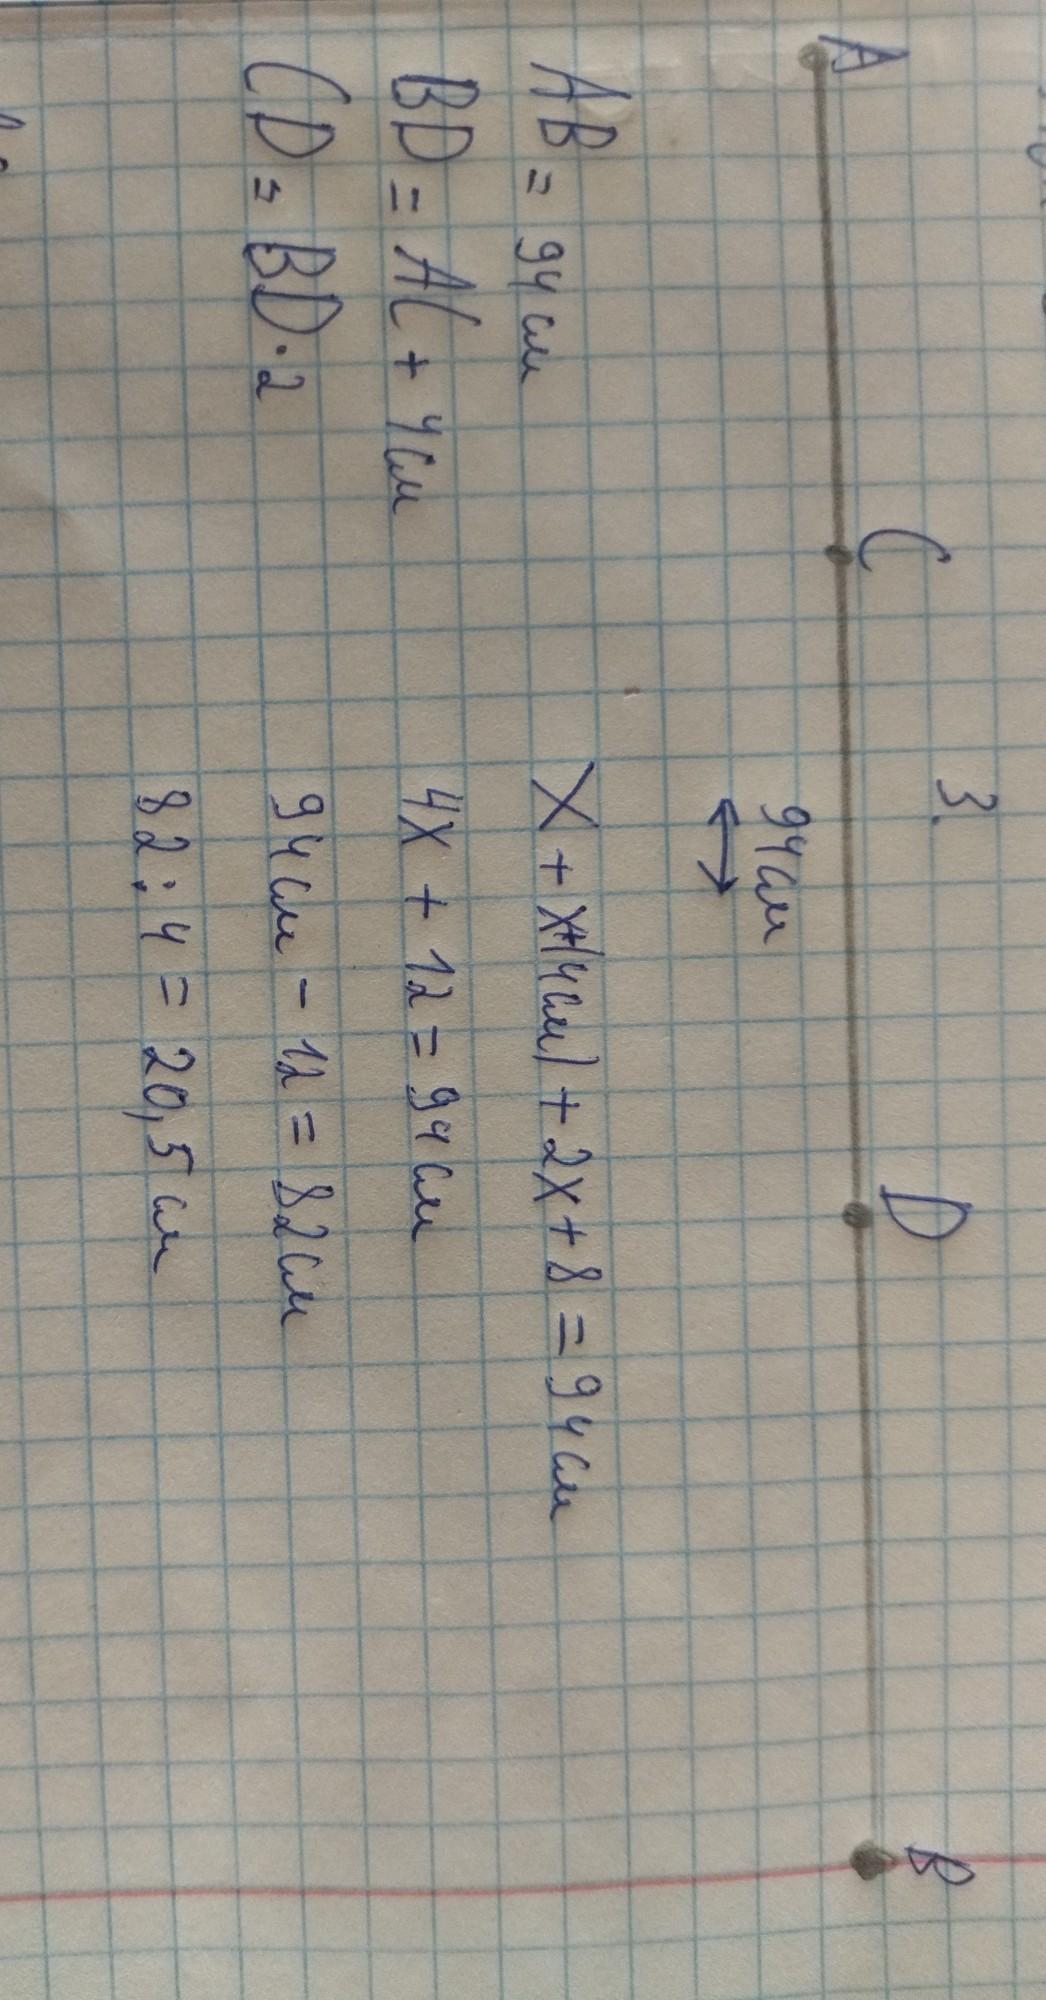 3.
A C D B
94см
AB = 94см
BD = AC + 4см
CD = BD · 2
X + X+(4см) + 2X + 8 = 94см
4X + 12 = 94см
94см - 12 = 82см
82 : 4 = 20,5см